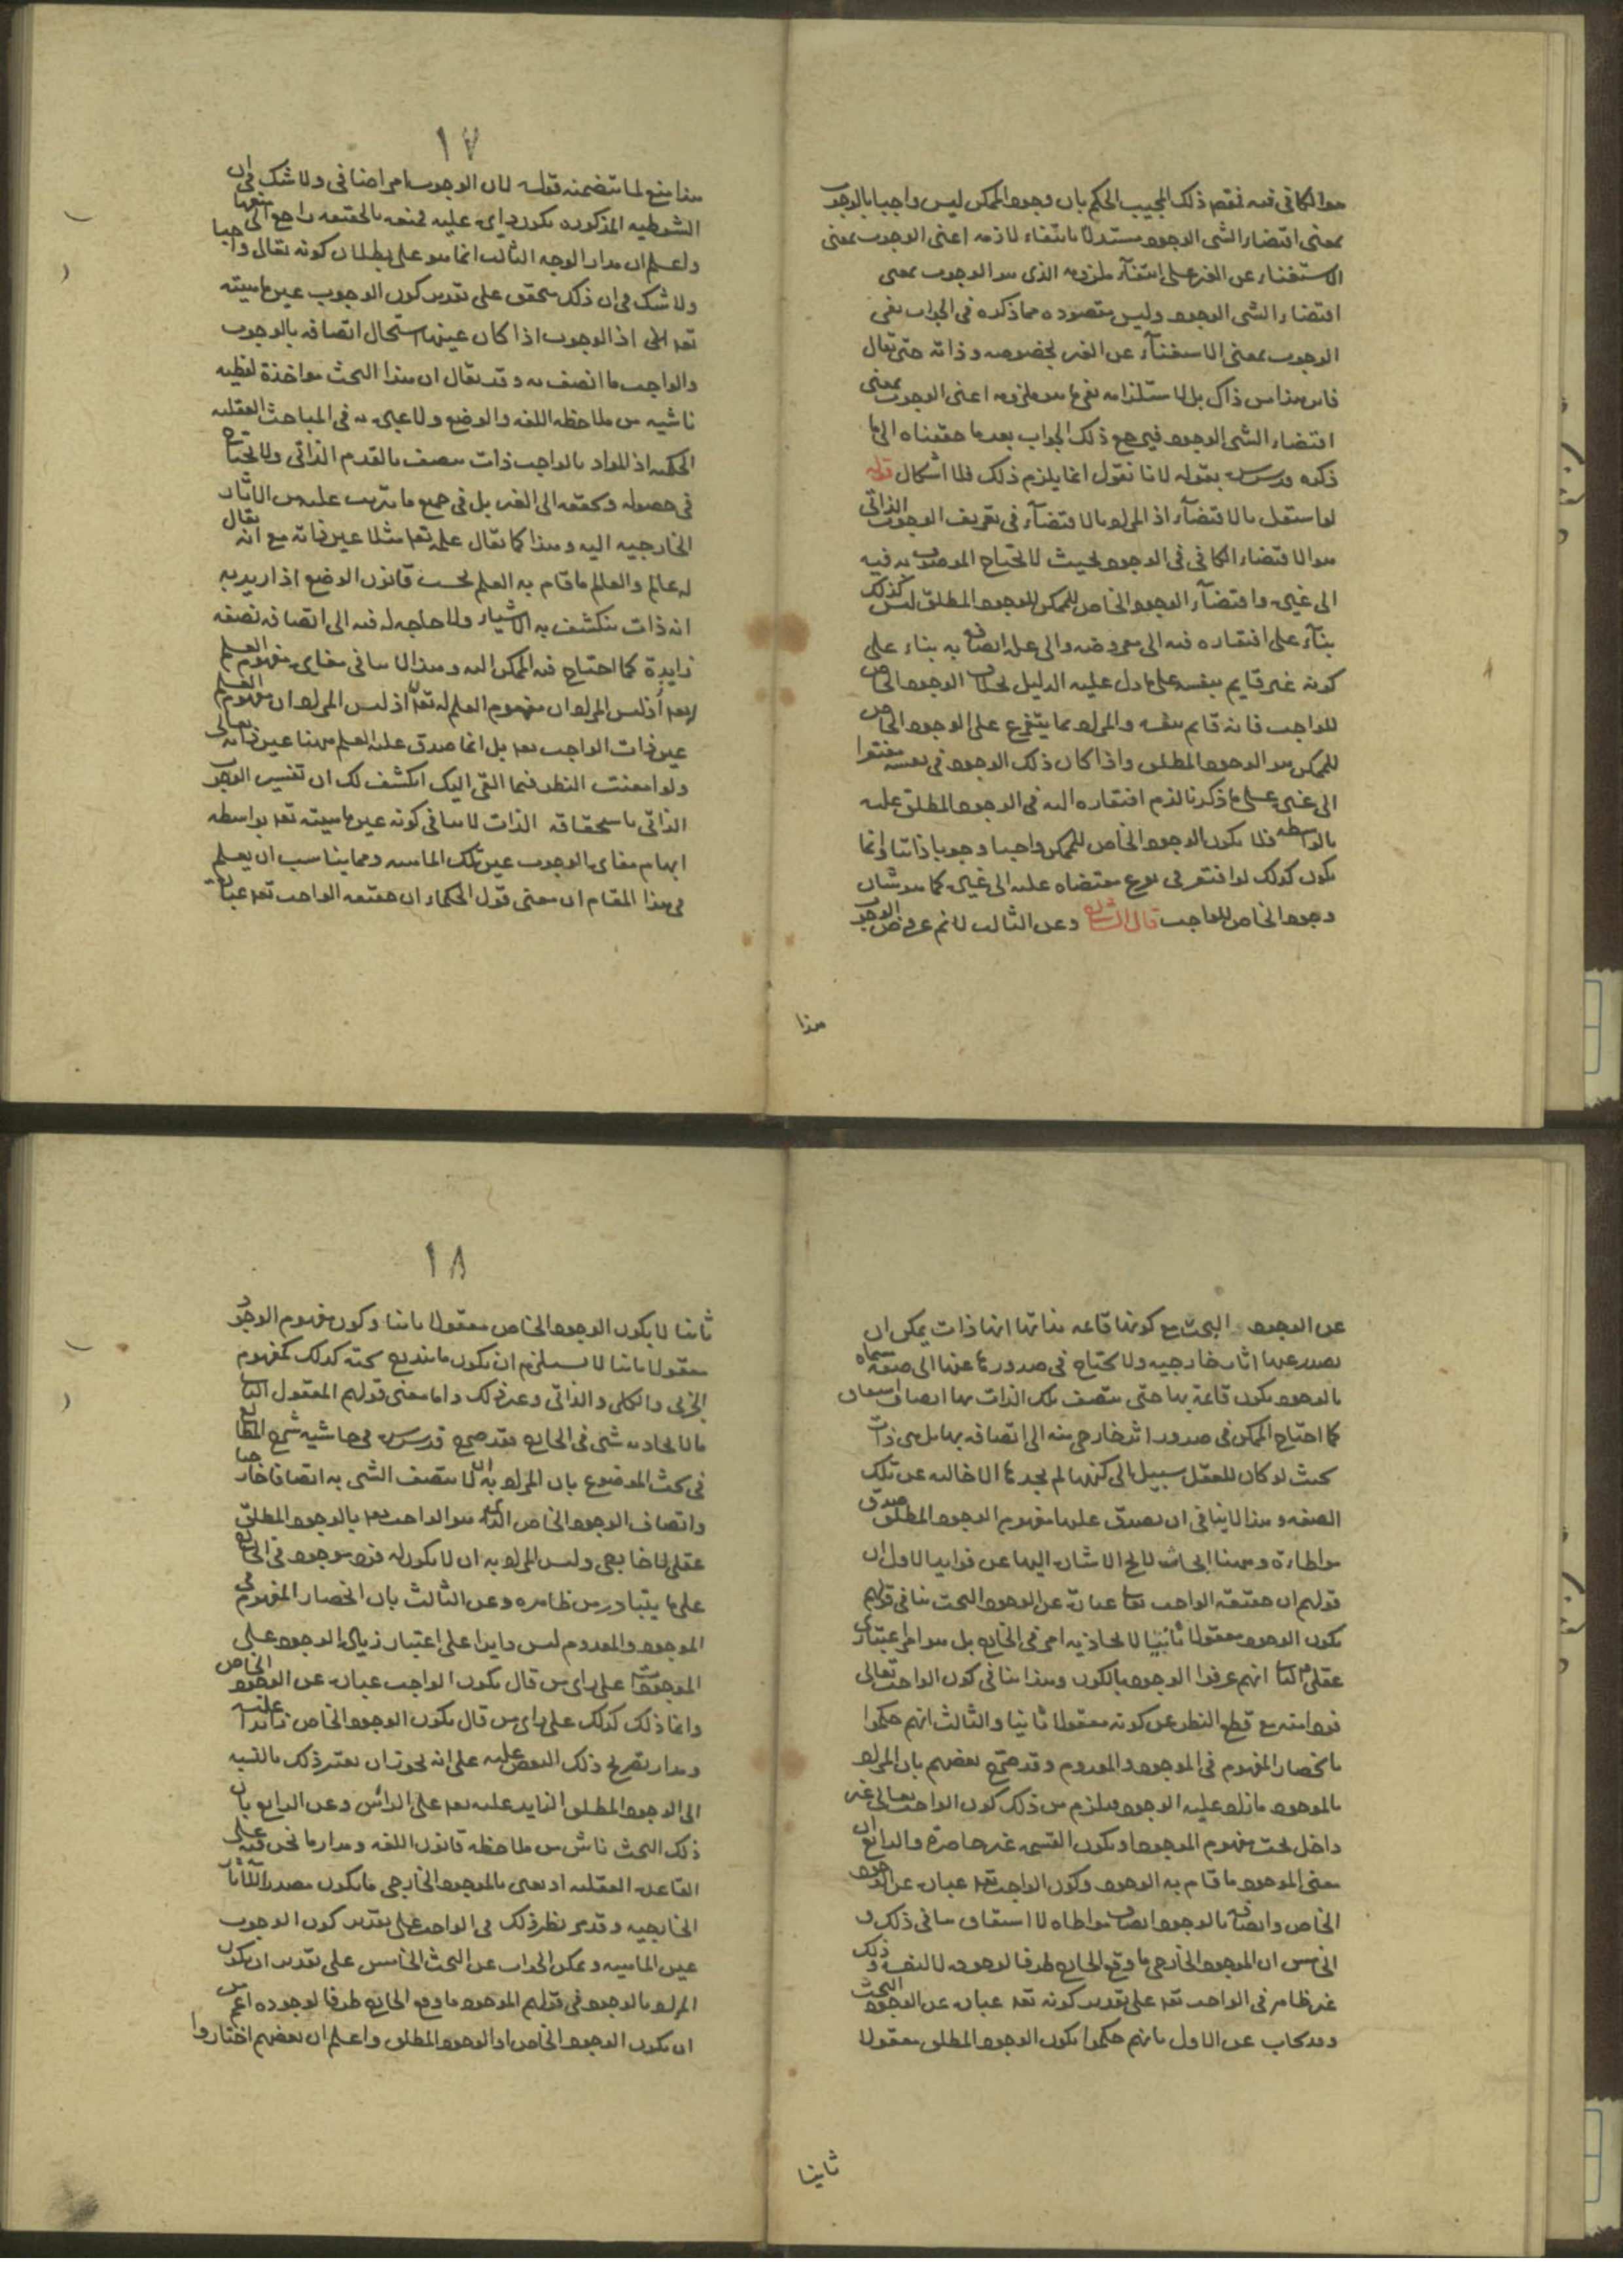 هو الكافي فيه فقصد ذلك المجيب الحكم بان وجود الممكن ليس واجبا بالوجوب
بمعنى اقتضاء الشي الوجود مستدلا بانتفاء لازمه اعنى الوجوب بمعنى
الاستغناء عن الغير على انتفآء ملزومه الذى هو الوجوب بمعنى
اقتضاء الشى الوجود وليس مقصوده مما ذكره في الجواب نفى
الوجوب بمعنى الاستغنآء عن الغير بخصوصه وذاته حتى يقال
فاين هذا من ذاك بل لاستلزامه نفى ما هو ملزومه اعنى الوجوب بمعنى
اقتضاء الشى الوجود فيرجع ذلك الجواب بعد ما حققناه الى ما
ذكره قدس سره بقوله لانا نقول انما يلزم ذلك فلا اشكال قوله
لو استقل بالاقتضآء اذ المراد بالاقتضآء في تعريف الوجوب الذاتى
هو الاقتضاء الكافى في الوجود بحيث لا يحتاج الموصوف به فيه
الى غيره واقتضآء الوجود الخاص للممكن للوجود المطلق ليس كذلك
بنآء على افتقاره فيه الى معروضه والى علة اتصافه به بناء على
كونه غير قايم بنفسه على ما دل عليه الدليل بخلاف الوجود الخاص
للواجب فانه قايم بنفسه والمراد بما يتفرع على الوجود الخاص
للممكن هو الوجود المطلق واذا كان ذلك الوجود في نفسه مفتقرا
الى غيره على ما ذكرنا لزم افتقاره اليه في الوجود المطلق عليه
بالواسطه فلا يكون الوجود الخاص للممكن واجبا وجوبا ذاتيا وانما
يكون كذلك لو افتقر في نوع مقتضاه عليه الى غيره كما هو شان
وجود الخاص للواجب قال الشارح وعن الثالث لانم عروض الوجوب
هذا
١٧
هذا منع لما يتضمنه قوله لان الوجوب امر اضافى ولا شك في ان
الشرطيه المذكوره يكون دايره عليه فمنعه بالحقيقه راجع الى منعها
واعلم ان مدار الوجه الثالث انما هو على بطلان كونه تعالى واجبا
ولا شك في ان ذلك يتحقق على تقدير كون الوجوب عين ماهيته
تعالى اذ الوجوب اذا كان عينها استحال اتصافه بالوجوب
والواجب ما اتصف به وقد يقال ان هذا البحث مواخذة لفظيه
ناشيه من ملاحظه اللغه والوضع ولا عبره به في المباحث العقليه
الحكميه اذ المراد بالواجب ذات متصف بالقدم الذاتى ولا يحتاج
في حصوله وتحققه الى الغير بل في جميع ما يترتب عليه من الاثار
الخارجيه اليه وهذا كما يقال علمه تعالى مثلا عين ذاته مع انه يقال
له عالم والعالم ما قام به العلم بحسب قانون الوضع اذ اريد به
انه ذات ينكشف به الاشيار ولا حاجه له فيه الى اتصافه بصفه
زايدة كما احتاج فيه الممكن اليه وهذا لا ينافى مغايره مفهوم العلم
له تعالى اذ ليس المراد ان مفهوم العلم
عين ذات الواجب تعالى بل انما صدق عليه العلم هنا عين ذاته تعالى
ولو امعنت النظر فيما القى اليك انكشف لك ان تفسير الوجوب
الذاتى باستحقاقه الذات لا ينافى كونه عين ماهيته تعالى بواسطه
ايهام مغايره الوجوب عين تلك الماهيه ومما يناسب ان يعلم
في هذا المقام ان معنى قول الحكماء ان حقيقه الواجب تعالى عبارة
عن الوجود البحت مع كونها قائمه بذاتها انها ذات يمكن ان
يصدر عنها اثار خارجيه ولا يحتاج في صدورها عنها الى صفه مسماه
بالوجود يكون قائمة بها حتى يتصف تلك الذات بها اتصاف
كما احتاج الممكن في صدور اثر خارجى منه الى اتصافه بها بل هى ذات
بحيث لو كان للعقل سبيل الى كنهها لم يجدها الا خاليه عن تلك
الصفه وهذا لا ينافى ان يصدق عليها مفهوم الوجود المطلق صدق
مواطاءة وههنا ابحاث لا يخ الاشاره اليها عن فوايد الاول ان
قولهم ان حقيقه الواجب تعالى عبارة عن الوجود البحت ينافى قولهم
بكون الوجود معقولا ثانيا لا يحاذيه امر في الخارج بل هو امر اعتبارى
عقلى الثانى انهم عرفوا الوجود بالكون وهذا ينافى كون الواحب تعالى
فردا منه مع قطع النظر عن كونه معقولا ثانيا والثالث انهم حكموا
بانحصار المفهوم في الموجود والمعدوم وقد صرح بعضهم بان المراد
بالموجود ما زاد عليه الوجود فيلزم من ذلك كون الواجب تعالى غير
داخل تحت مفهوم الموجود او يكون القسمه غير حاصرة والرابع ان
معنى الموجود ما قام به الوجود وكون الواجب تعالى عباره عن الوجود
الخاص واتصافه بالوجود اتصاف مواطاه لا اشتقاق ينافى ذلك و
الخامس ان الموجود الخارجى ما وقع الخارج ظرفا لوجوده لا لنفسه وذلك
غير ظاهر في الواحب تعالى على تقدير كونه تعالى عباره عن الوجود البحت
وقد يجاب عن الاول بانهم حكموا بكون الوجود المطلق معقولا
ثانيا
١٨
ثانيا لا بكون الوجود الخاص معقولا ثانيا وكون مفهوم الوجود
معقولا ثانيا لا يستلزم ان يكون ما يندرج تحته كذلك كمفهوم
الجزيى والكلى والذاتى وغير ذلك واما معنى قولهم المعقول الثانى
ما لا يحاذيه شى في الخارج فقد صرح قدس سره في حاشيه شرح المطالع
في بحث الموضوع بان المراد به ان لا يتصف الشى به اتصافا خارجيا
واتصاف الوجود الخاص الذى هو الواحب تعالى بالوجود المطلق
عقلى لا خارجى وليس المراد به ان لا يكون له فرد موجود في الخارج
على ما يتبادر من ظاهره وعن الثالث بان انحصار المفهوم في
الموجود والمعدوم ليس دايرا على اعتبار زياده الوجود على
الموجودات على راى من قال بكون الواجب عباره عن الوجود الخاص
وانما ذلك كذلك على راى من قال بكون الوجود الخاص زايدا عليه
ومدار تصريح ذلك البعض عليه على انه يجوز ان يعتبر ذلك بالنسبه
الى الوجود المطلق الزايد عليه تعالى على الراس وعن الرابع بان
ذلك البحث ناش من ملاحظه قانون اللغه ومدار ما نحن فيه على
القاعده العقليه او يعنى بالموجود الخارجى ما يكون مصدر الاثار
الخارجيه وقد مر نظير ذلك في الواحب على تقدير كون الوجوب
عين الماهيه ويمكن الجواب عن البحث الخامس على تقدير ان يكون
المراد بالوجود في قولهم الموجود ما وقع الخارج ظرفا لوجوده اعم من
ان يكون الوجود الخاص او الوجود المطلق واعلم ان بعضهم اختاروا